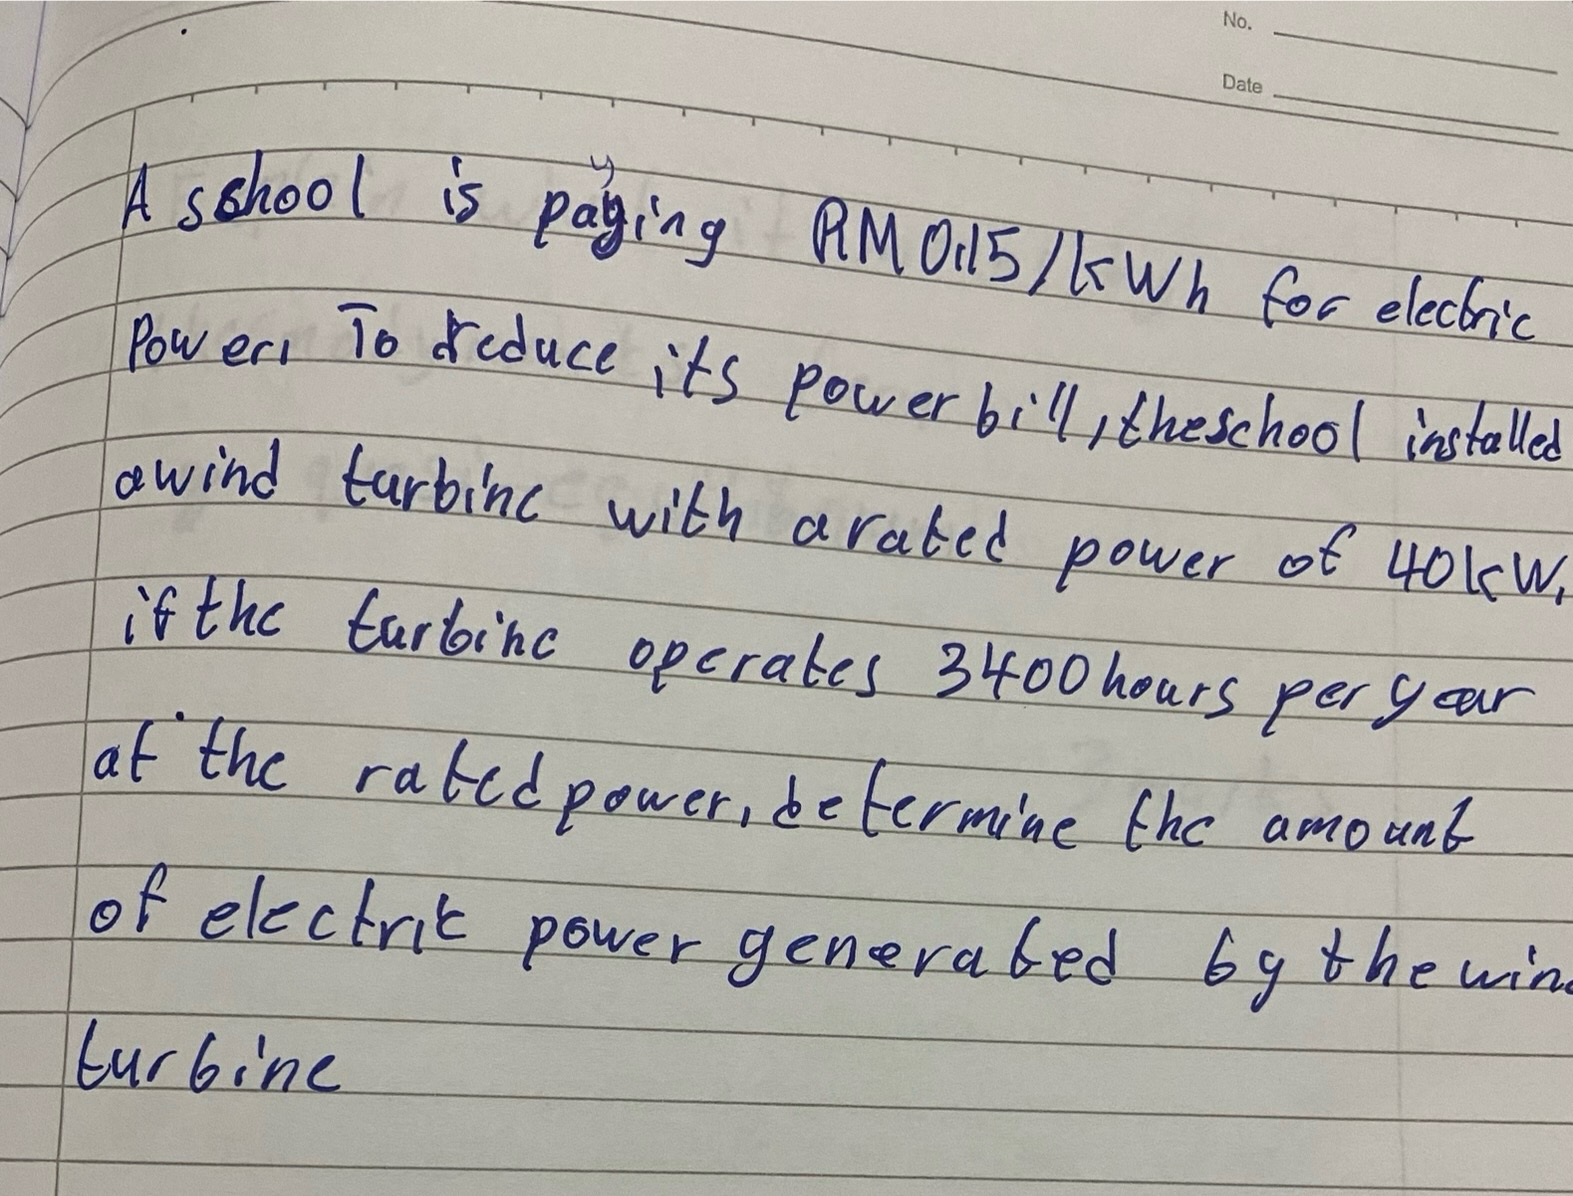 No.
Date
A school is paying RM 0.15/kWh for electric
Power. To reduce its power bill, the school installed
a wind turbine with a rated power of 40kW.
if the turbine operates 3400 hours per year
at the rated power, determine the amount
of electric power generated by the win
turbine